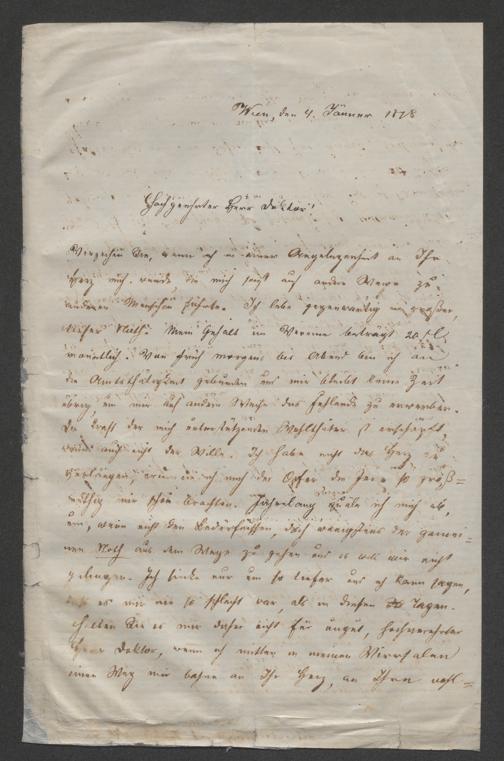 Wien, den 4. Jänner 1878
Hochgeehrter Herr Doktor!
Verzeihen Sie, wenn ich in einer Angelegenheit an Ihr
Herz mich wende, die mich sonst auf andere Wege zu
anderen Menschen führte. Ich lebe gegenwärtig in großer,
tiefer Noth. Mein Gehalt im Vereine beträgt 20 fl
monatlich. Von früh morgens bis Abend bin ich an
die Amtsthätigkeit gebunden und mir bleibt keine Zeit
übrig, um mir auf andere Weise das Fehlende zu erwerben.
Die Kraft der mich unterstützenden Wohlthäter ist erschöpft,
wenn auch nicht der Wille. Ich habe nicht das Herz zu
verlangen, noch der Opfer die Jene so groß=
müthig mir schon brachten. Jahrelang quäle ich mich ab,
um, wenn nicht den Bedürfnissen, doch wenigstens der gemei=
nen Noth aus dem Wege zu gehen und es will mir nicht
gelingen. Ich sinke nur um so tiefer und ich kann sagen,
daß es mir nie so schlecht war, als in diesen Tagen.
Halten Sie es mir daher nicht für ungut, hochverehrter
Herr Doktor, wenn ich mitten in meinen Wirrsalen
einen Weg mir bahne an Ihr Herz, an Ihren wohl=